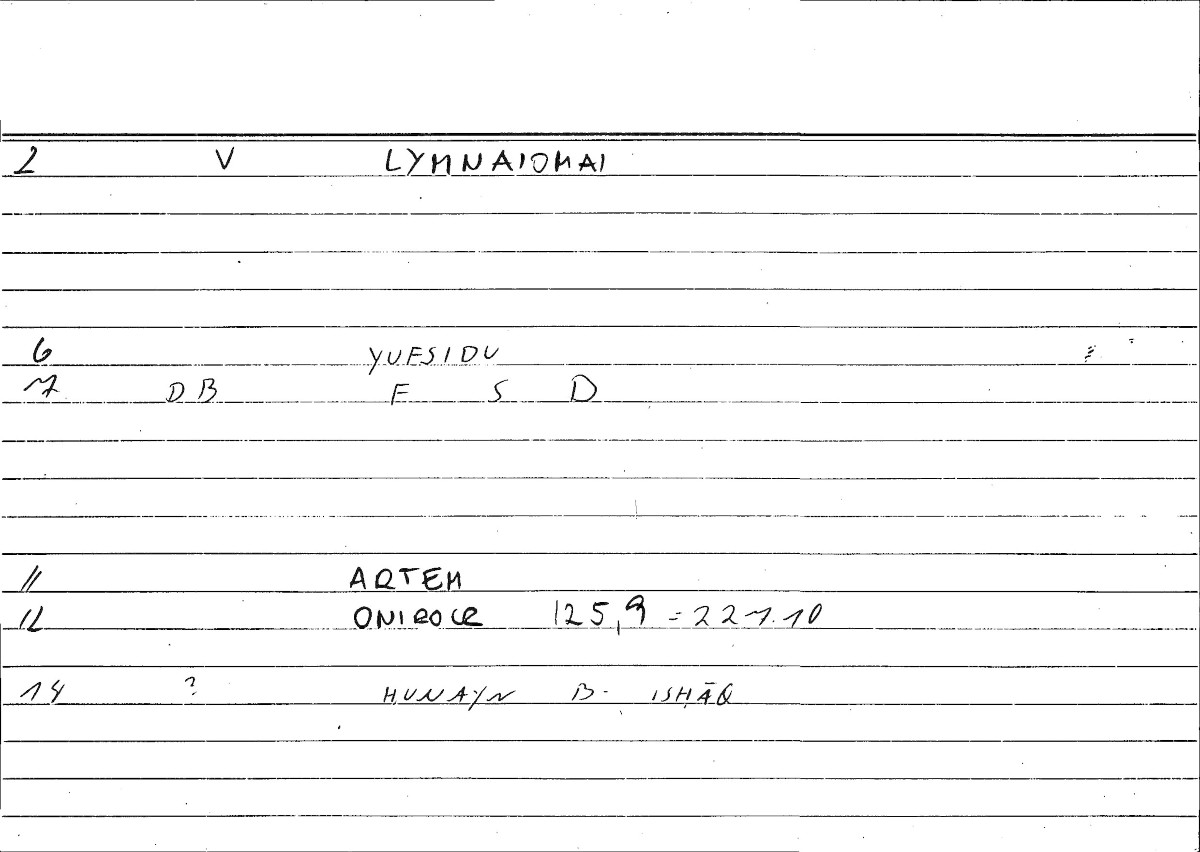 2 V LYMNAIOMAI
6 YUFSIDU
7 DB F S D
11 ARTEM
12 ONIROCR 125,9 = 221.10
14 ? ḤUNAYN B. ISḤĀQ